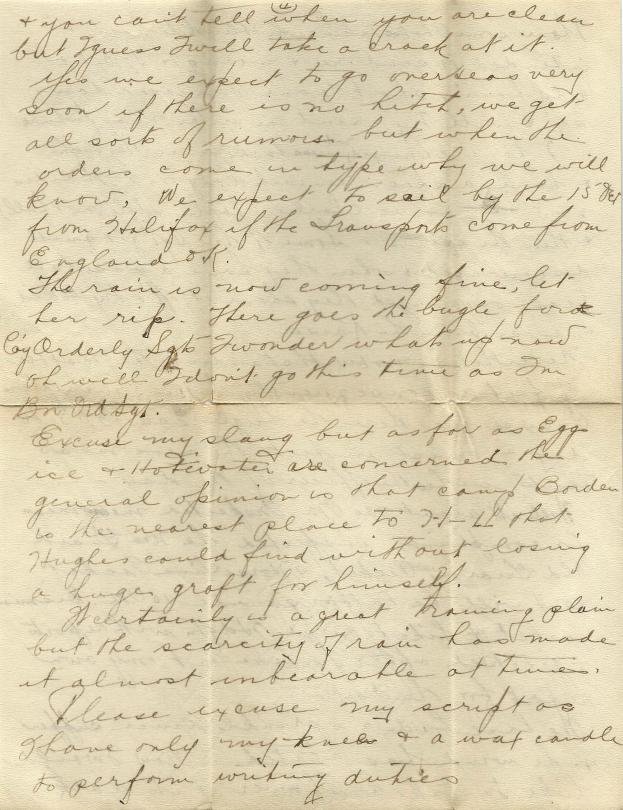 (4)
& you can't tell when you are clean
but I guess I will take a crack at it.
Yes we expect to go overseas very
soon if there is no hitch, we get
all sorts of rumors but when the
orders come in type why we will
know, We expect to sail by the 15th
from Halifax if the Transports come from
England OK.
The rain is now coming fine, let
her rip. There goes the bugle for
Coy Orderly Sgts I wonder what's up now
oh well I don't go this time as I'm
Bn Ord Sgt.
Excuse my slang but as far as Egg
ice & Hot water are concerned the
general opinion is that camp Borden
is the nearest place to H-LL that
Hughes could find without losing
a huge graft for himself.
It certainly is a great training plain
but the scarcity of rain has made
it almost unbearable at times.
Please excuse my script as
I have only my knee & a wax candle
to perform writing duties